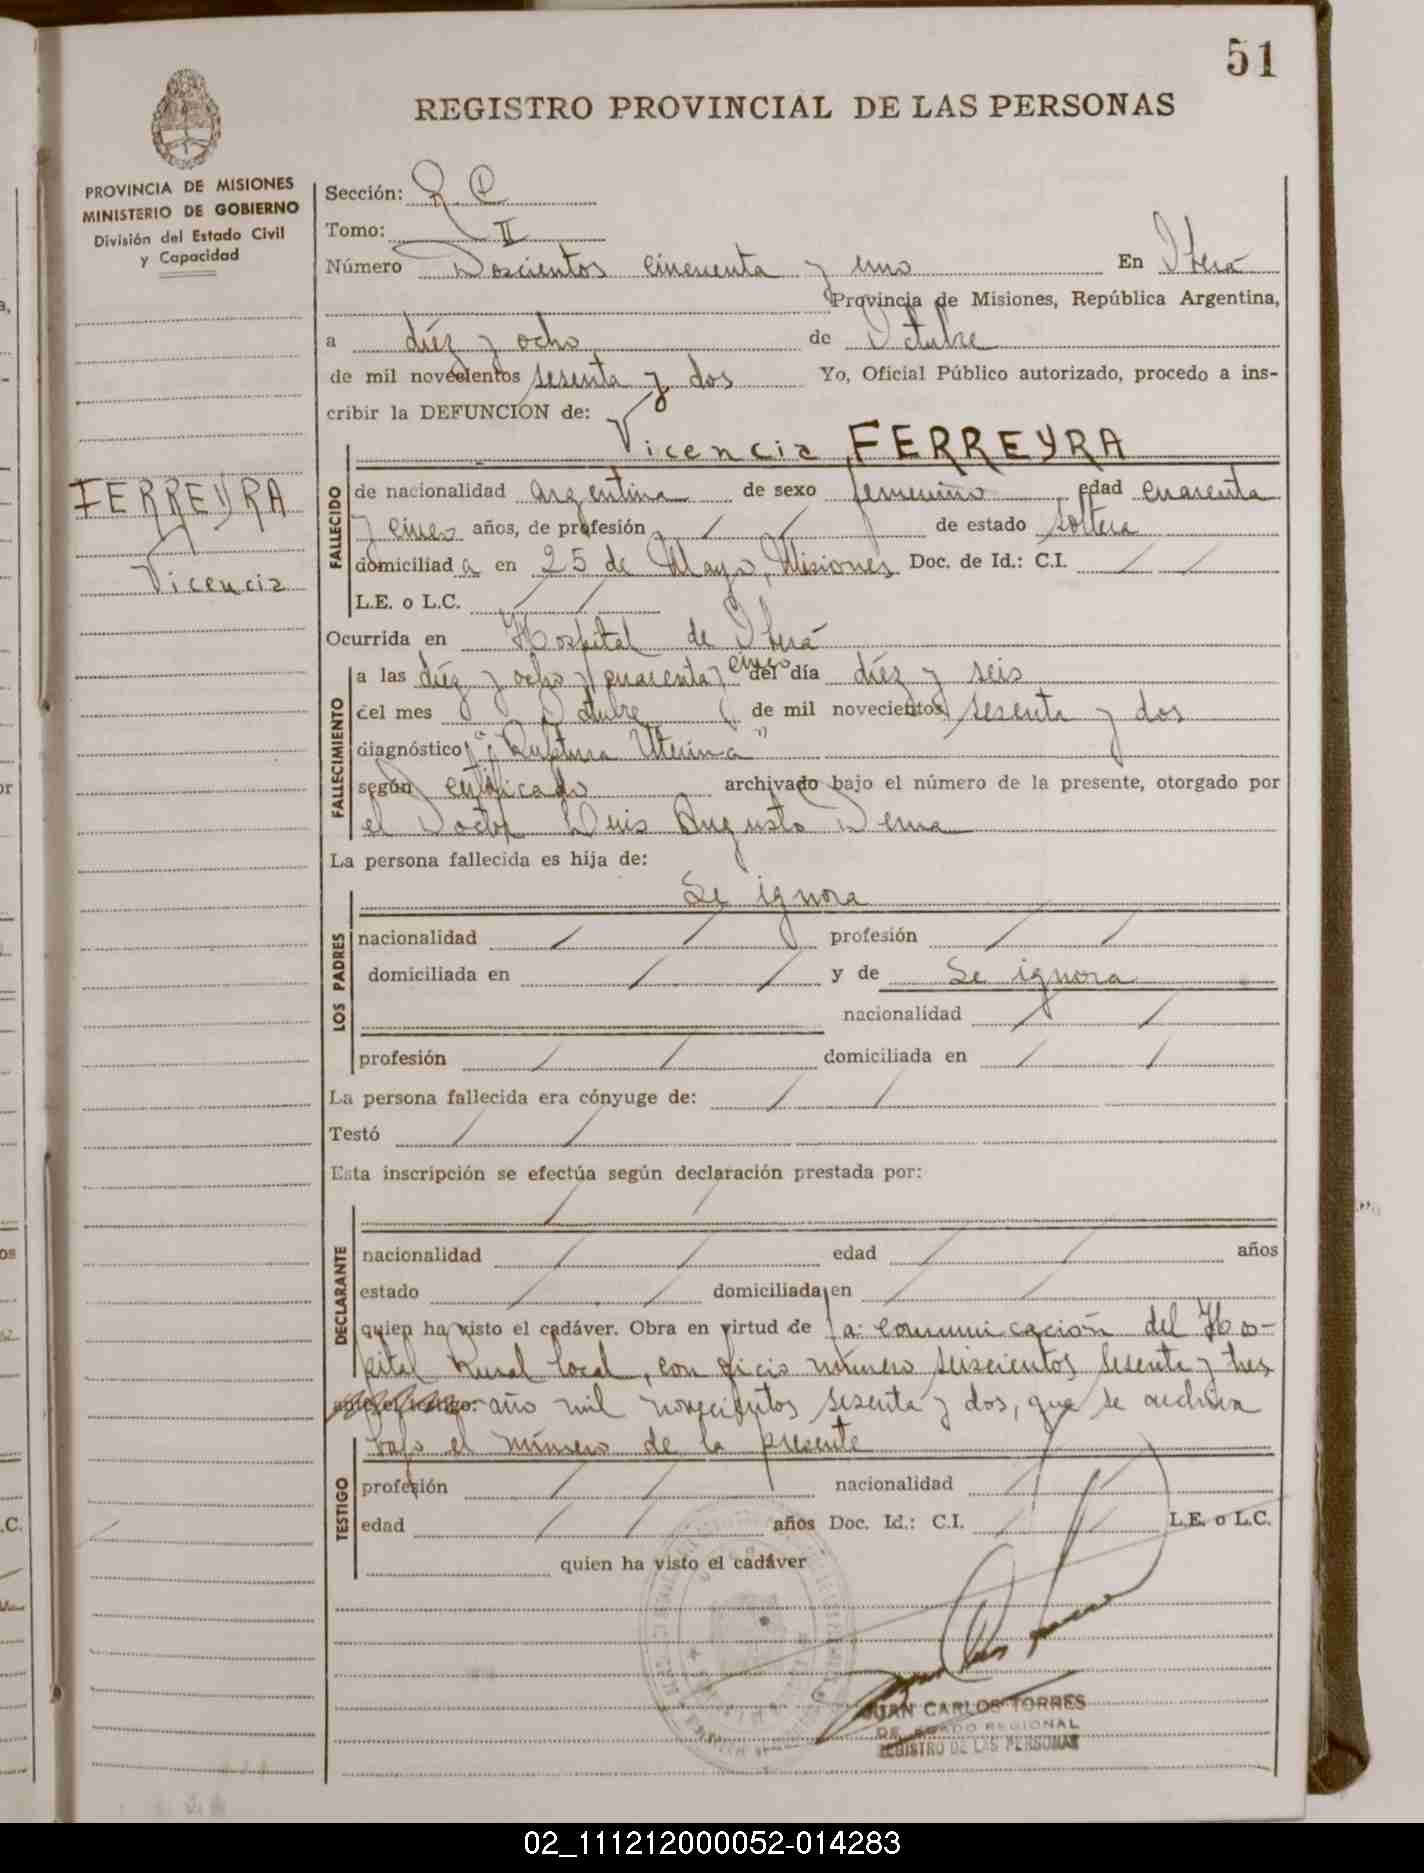 51
REGISTRO PROVINCIAL DE LAS PERSONAS
PROVINCIA DE MISIONES
MINISTERIO DE GOBIERNO
División del Estado Civil
y Capacidad
FERREYRA
Vicencia
Sección: R. P
Tomo: II
Número Doscientos cincuenta y uno En Oberá
Provincia de Misiones, República Argentina,
a diéz y ocho de Octubre
de mil novecientos sesenta y dos Yo, Oficial Público autorizado, procedo a ins-
cribir la DEFUNCION de:
Vicencia FERREYRA
FALLECIDO
de nacionalidad argentina de sexo femenino edad cuarenta
y cinco años, de profesión / / de estado soltera
domiciliada en 25 de Mayo, Misiones Doc. de Id.: C.I. / /
L.E. o L.C. / /
Ocurrida en Hospital de Oberá
FALLECIMIENTO
a las diéz y ocho y cuarenta y cinco del día diéz y seis
del mes Octubre de mil novecientos sesenta y dos
diagnóstico "Ruptura Uterina"
según certificado archivado bajo el número de la presente, otorgado por
el Doctor Luis Augusto Derna
La persona fallecida es hija de:
Se ignora
LOS PADRES
nacionalidad / / profesión / /
domiciliada en / / y de Se ignora
nacionalidad / /
profesión / / domiciliada en / /
La persona fallecida era cónyuge de: / /
Testó / /
Esta inscripción se efectúa según declaración prestada por:
/ /
DECLARANTE
nacionalidad / / edad / / años
estado / / domiciliada en / /
quien ha visto el cadáver. Obra en virtud de la comunicación del Hos-
pital Rural local, con oficio número seiscientos sesenta y tres
ante el testigo: año mil novecientos sesenta y dos, que se archiva
bajo el número de la presente
TESTIGO
profesión / / nacionalidad / /
edad / / años Doc. Id.: C.I. / / L.E. o L.C.
quien ha visto el cadáver
JUAN CARLOS TORRES
REGIONAL
REGISTRO DE LAS PERSONAS
02_111212000052-014283